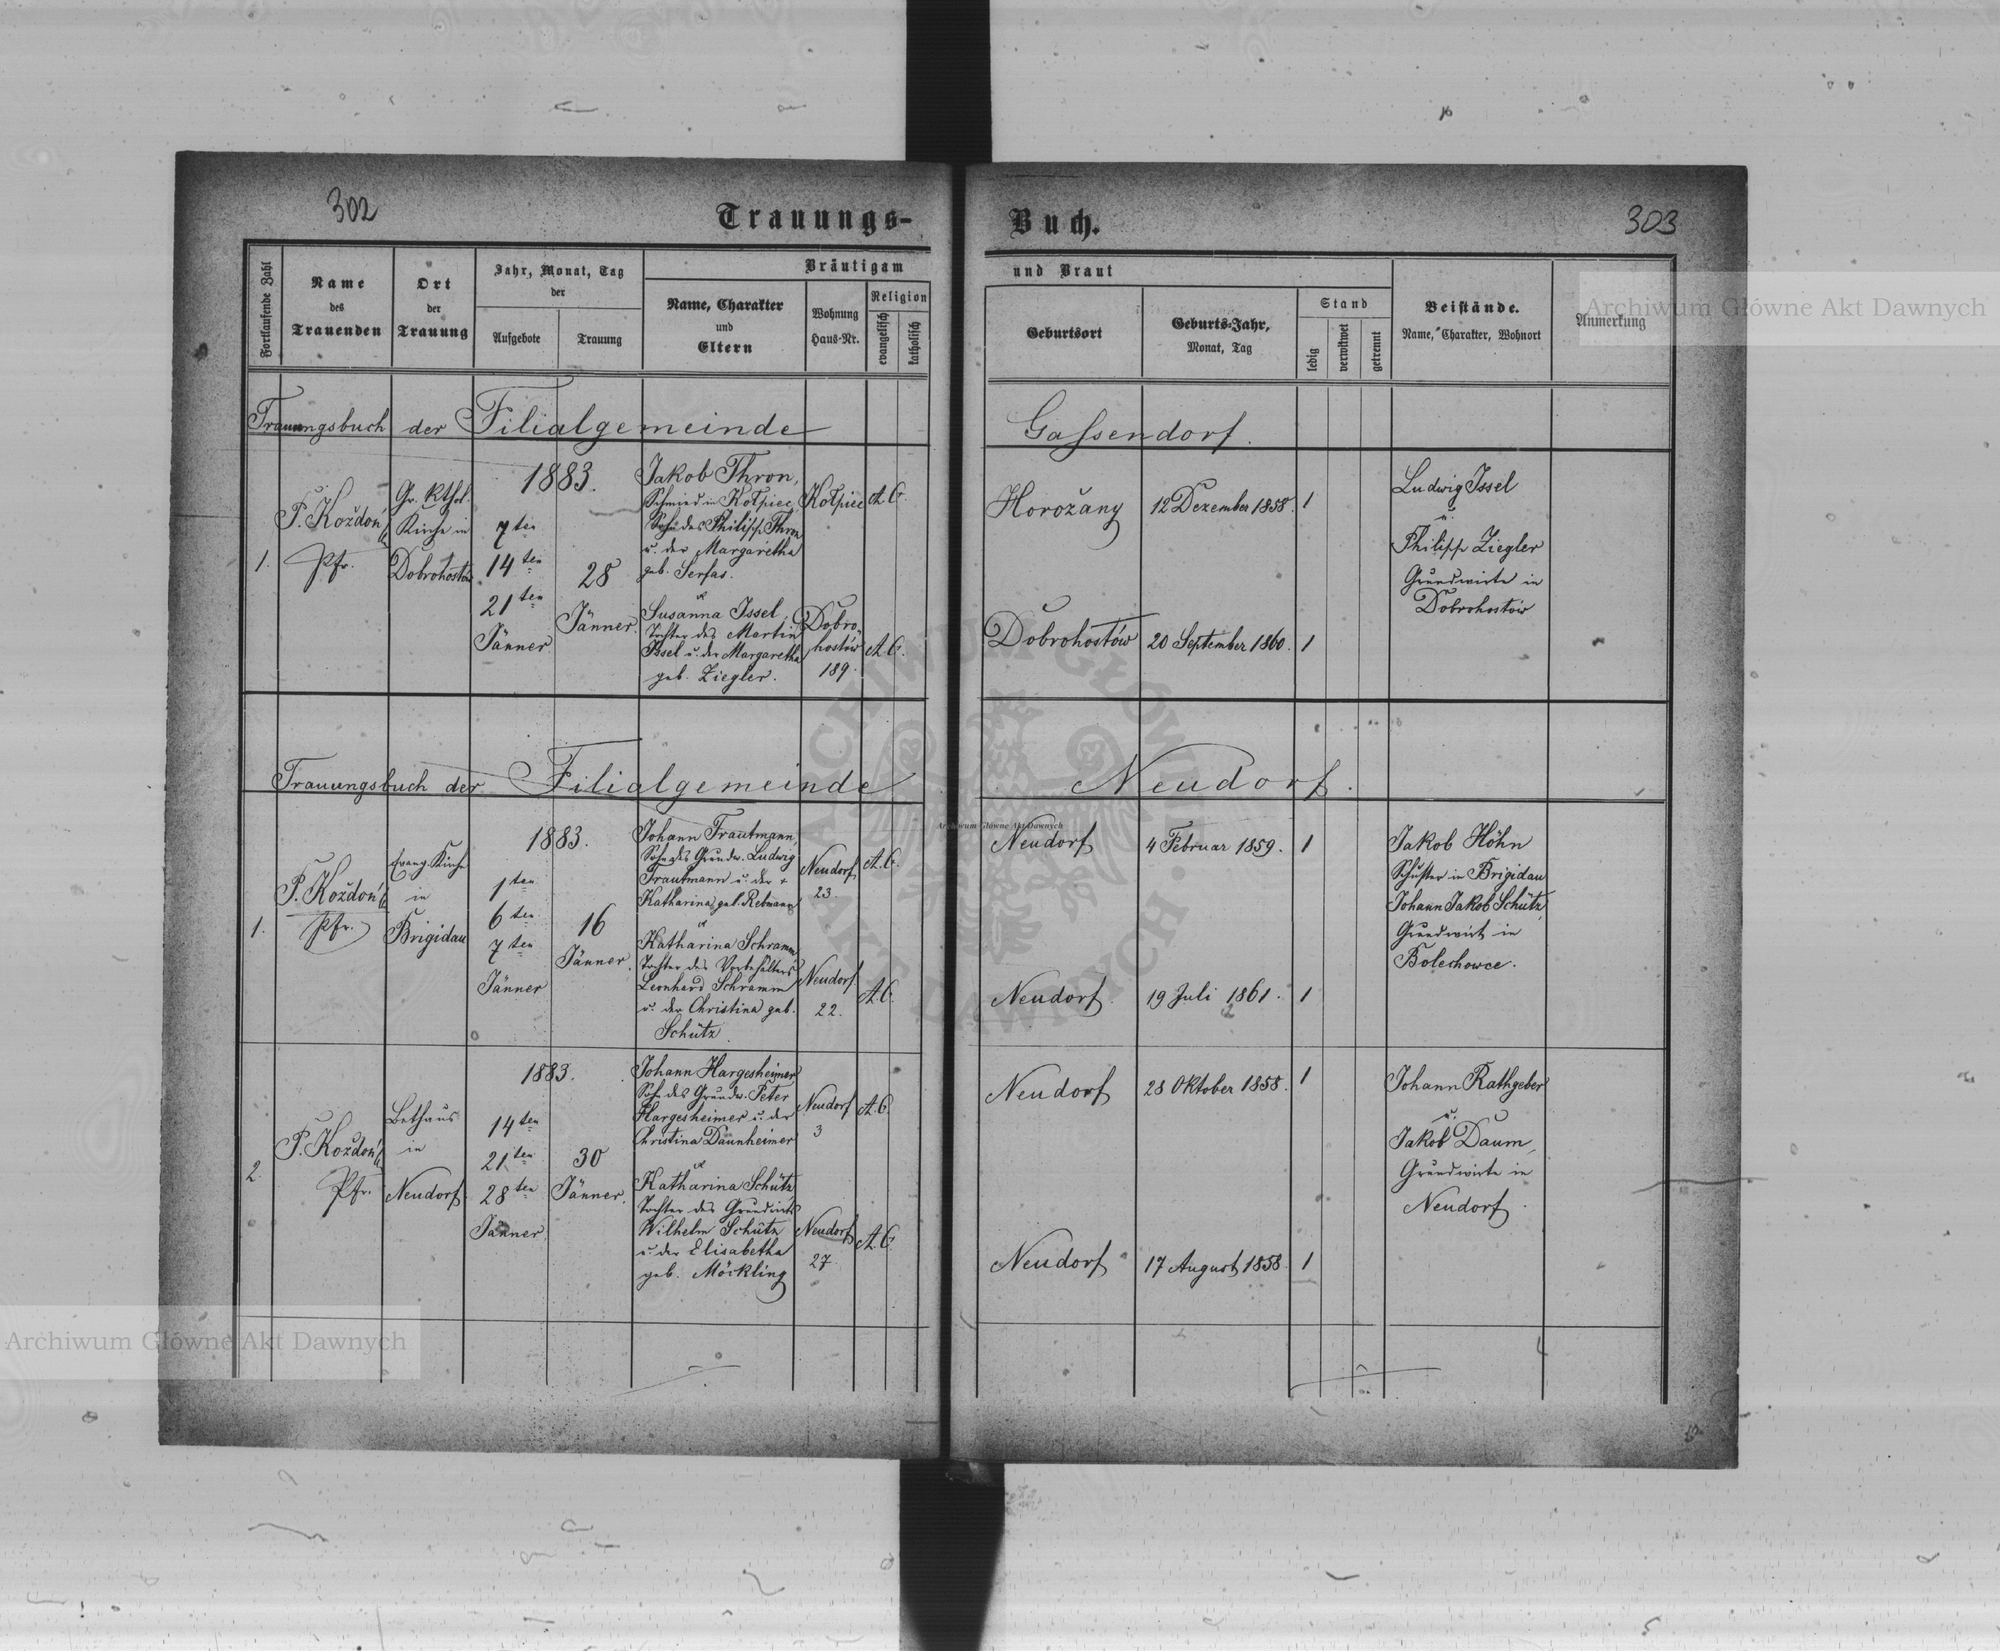 302
Trauungs-
Buch.
303
Fortlaufende Zahl
Name
des
Trauenden
Ort
der
Trauung
Jahr, Monat, Tag
der
Aufgebote
Trauung
Bräutigam
Name, Charakter
und
Eltern
Wohnung
Haus-Nr.
Religion
evangelisch
katholisch
und Braut
Geburtsort
Geburts-Jahr,
Monat, Tag
Stand
ledig
verwitwet
getrennt
Beistände.
Name, Charakter, Wohnort
Anmerkung
Trauungsbuch der Filialgemeinde
Gassendorf.
1.
P. Koždoń
Pfr.
Gr. Kthol.
Kirche in
Dobrohostów
1883.
7ten
14ten
21ten
Jänner
28
Jänner.
Jakob Thron,
Schmied in Kołpiec,
Sohn des Philipp Thron
u. der Margaretha
geb. Serfas.
u.
Susanna Issel,
Tochter des Martin
Issel u. der Margaretha
geb. Ziegler.
Kołpiec
A.C.
Dobro-
hostów
189.
A.C.
Horožany
12 Dezember 1858.
1
Dobrohostów
20 September 1860.
1
Ludwig Issel
u.
Philipp Ziegler
Grundwirte in
Dobrohostów
Trauungsbuch der Filialgemeinde
Neudorf.
1.
P. Koždoń
Pfr.
Evang. Kirche
in
Brigidau
1883.
1ten
6ten
7ten
Jänner
16
Jänner.
Johann Trautmann,
Sohn des Grundw. Ludwig
Trautmann u. der +
Katharina geb. Rebmann
u.
Katharina Schramm
Tochter des Vorbehälters
Leonhard Schramm
u. der Christina geb.
Schütz.
Neudorf
23.
A.C.
Neudorf
22.
A.C.
Neudorf
4 Februar 1859.
1
Neudorf.
19 Juli 1861.
1
Jakob Höhn
Schuster in Brigidau
Johann Jakob Schütz,
Grundwirt in
Bolechowce.
2.
P. Koždoń
Pfr.
Bethaus
in
Neudorf.
1883.
14ten
21ten
28ten
Jänner.
30
Jänner.
Johann Hargesheimer
Sohn des Grundw. Peter
Hargesheimer u. der
Christina Dannheimer
u.
Katharina Schütz,
Tochter des Grundwirts
Wilhelm Schütz
u. der Elisabetha
geb. Möckling
Neudorf
3
A.C.
Neudorf
27.
A.C.
Neudorf
28 Oktober 1858.
1
Neudorf
17 August 1858.
1
Johann Rathgeber
u.
Jakob Daum,
Grundwirte in
Neudorf.
Archiwum Główne Akt Dawnych
Archiwum Główne Akt Dawnych
Archiwum Główne Akt Dawnych
ARCHIWUM GŁÓWNE AKT DAWNYCH